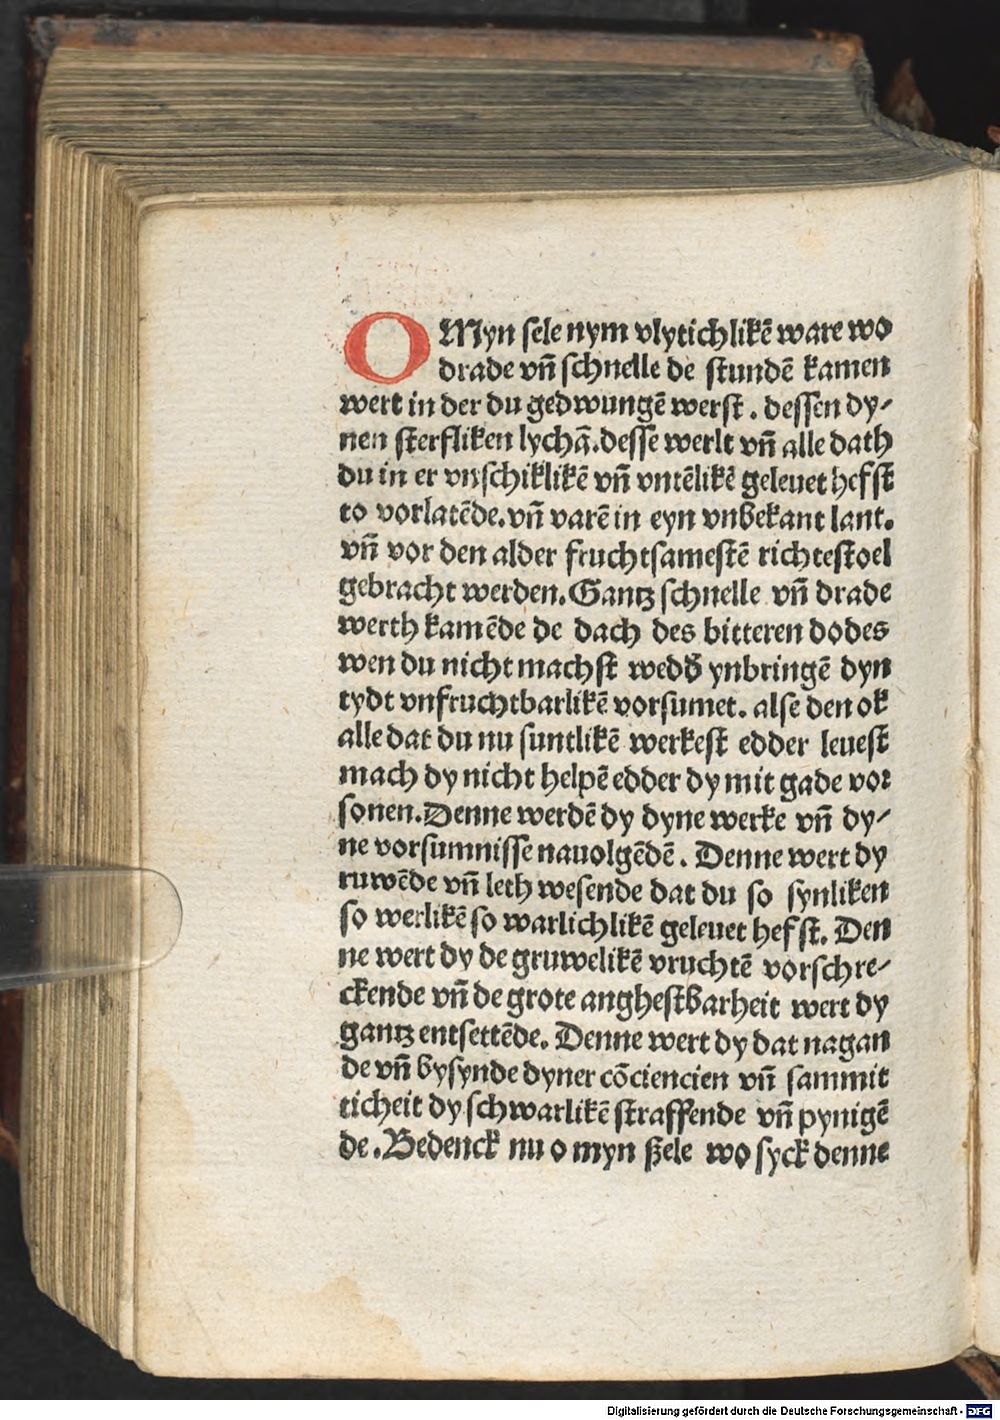 O Myn sele nym vlytichlikē ware wo
drade vn̄ schnelle de stundē kamen
wert in der du gedwungē werst . dessen dy⸗
nen sterfliken lychā. desse werlt vn̄ alle dath
du in er vnschiklikē vn̄ vntēlikē geleuet hefst
to vorlatēde. vn̄ varē in eyn vnbekant lant.
vn̄ vor den alder fruchtsamestē richtestoel
gebracht werden. Gantz schnelle vn̄ drade
werth kamēde de dach des bitteren dodes
wen du nicht machst wedd' ynbringē dyn
tydt vnfruchtbarlikē vorsumet. alse den ok
alle dat du nu suntlikē werkest edder leuest
mach dy nicht helpē edder dy mit gade vor
sonen. Denne werdē dy dyne werke vn̄ dy⸗
ne vorsumnisse nauolgēdē . Denne wert dy
ruwēde vn̄ leth wesende dat du so synliken
so werlikē so warlichlikē geleuet hefst. Den
ne wert dy de gruwelikē vruchtē vorschre⸗
ckende vn̄ de grote anghestbarheit wert dy
gantz entsettēde. Denne wert dy dat nagan
de vn̄ bysynde dyner cōciencien vn̄ sammit
ticheit dy schwarlikē straffende vn̄ pynigē
de. Bedenck nu o myn ßele wo syck denne
Digitalisierung gefördert durch die Deutsche Forschungsgemeinschaft - DFG